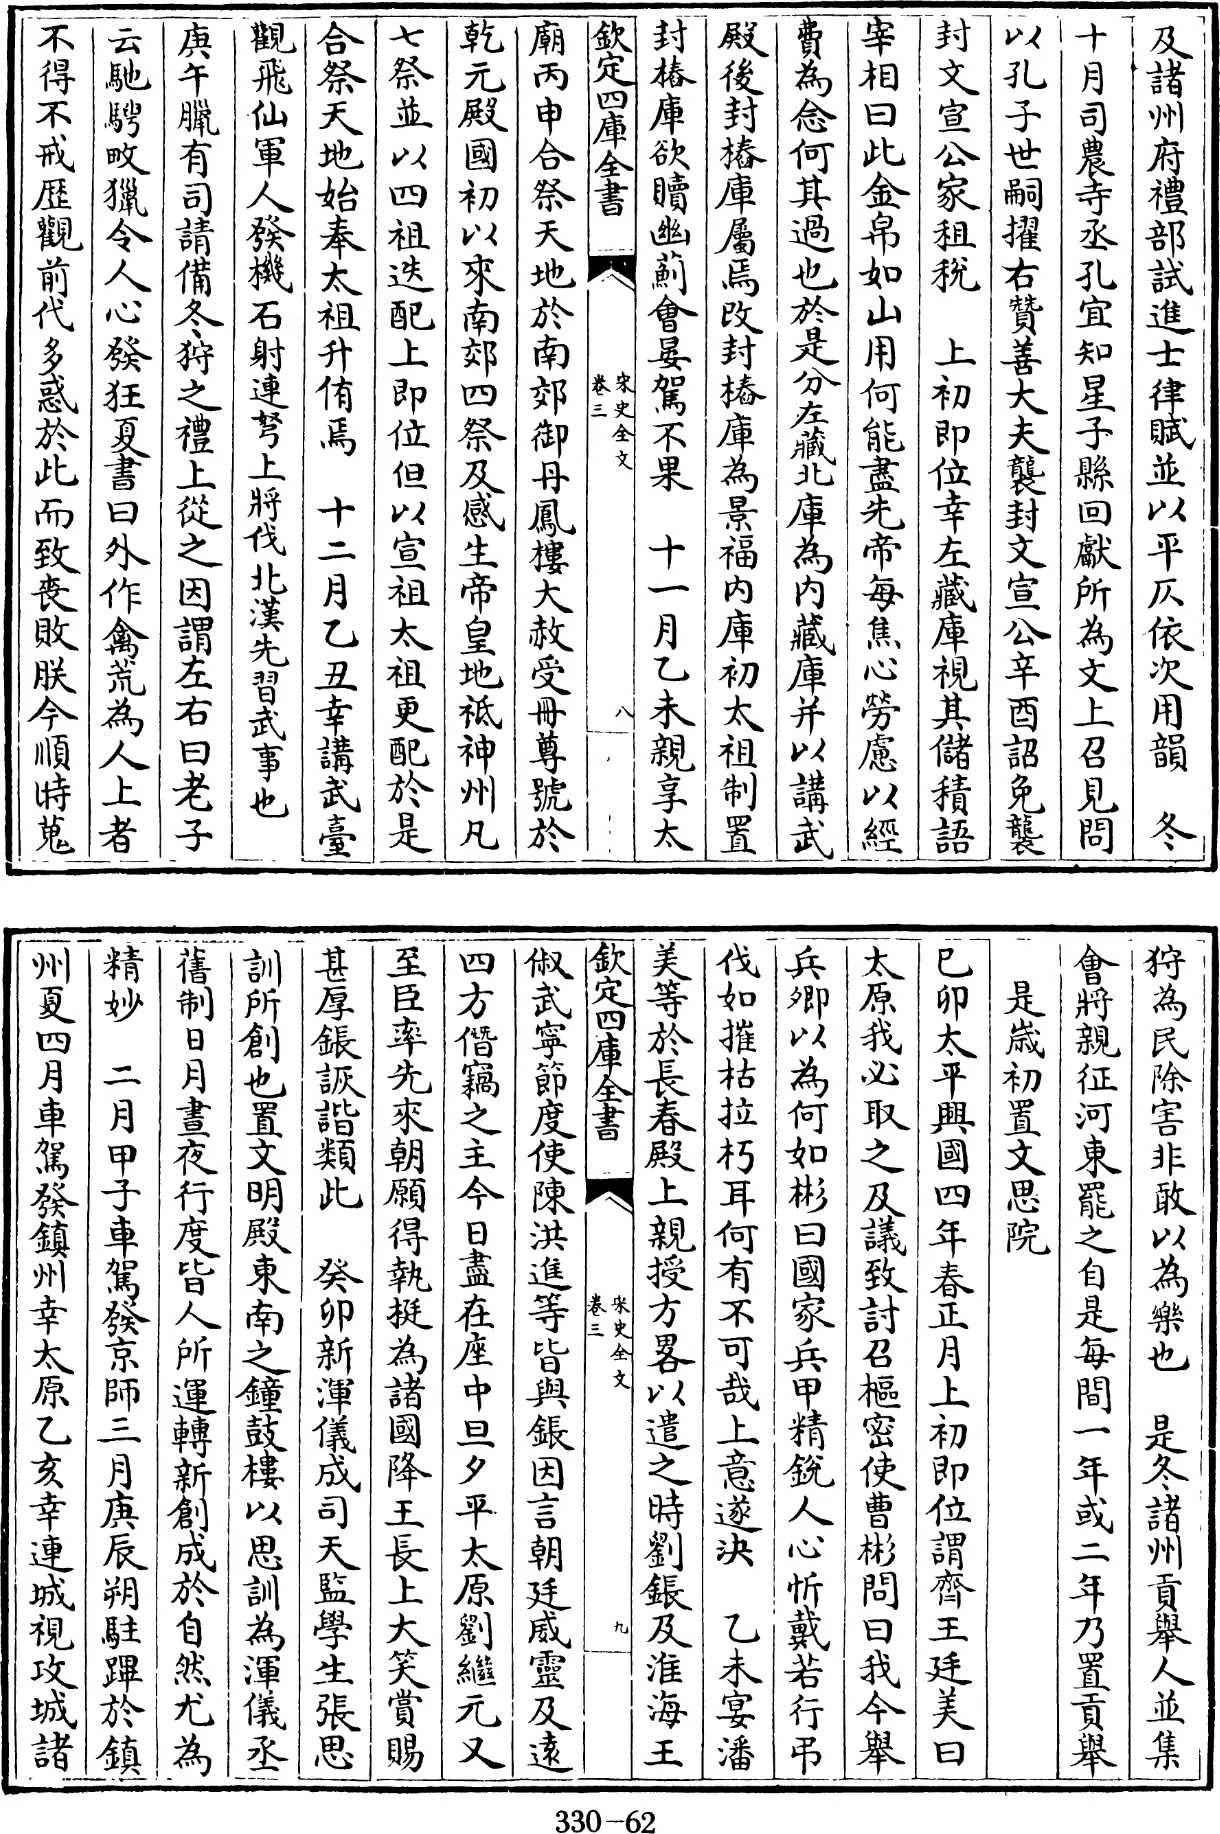 及諸州府禮部試進士律賦並以平仄依次用韻　冬
十月司農寺丞孔宜知星子縣回獻所為文上召見問
以孔子世嗣擢右贊善大夫襲封文宣公辛酉詔免襲
封文宣公家租稅　上初即位幸左藏庫視其儲積語
宰相曰此金帛如山用何能盡先帝每焦心勞慮以經
費為念何其過也於是分左藏北庫為内藏庫并以講武
殿後封樁庫屬焉改封樁庫為景福内庫初太祖制置
封樁庫欲贖幽薊會晏駕不果　十一月乙未親享太
欽定四庫全書
宋史全文
卷三
八
廟丙申合祭天地於南郊御丹鳳樓大赦受冊尊號於
乾元殿國初以來南郊四祭及感生帝皇地祗神州凡
七祭並以四祖迭配上即位但以宣祖太祖更配於是
合祭天地始奉太祖升侑焉　十二月乙丑幸講武臺
觀飛仙軍人發機石射連弩上將伐北漢先習武事也
庚午臘有司請備冬狩之禮上從之因謂左右曰老子
云馳騁畋獵令人心發狂夏書曰外作禽荒為人上者
不得不戒歴觀前代多惑於此而致喪敗朕今順時蒐
狩為民除害非敢以為樂也　是冬諸州貢舉人並集
會將親征河東罷之自是每間一年或二年乃置貢舉
是嵗初置文思院
已卯太平興國四年春正月上初即位謂齊王廷美曰
太原我必取之及議致討召樞密使曹彬問曰我今舉
兵卿以為何如彬曰國家兵甲精銳人心忻戴若行弔
伐如摧枯拉朽耳何有不可哉上意遂決　乙未宴潘
美等於長春殿上親授方畧以遣之時劉鋹及淮海王
欽定四庫全書
宋史全文
卷三
九
俶武寧節度使陳洪進等皆與鋹因言朝廷威靈及逺
四方僭竊之主今日盡在座中旦夕平太原劉繼元又
至臣率先來朝願得執挺為諸國降王長上大笑賞賜
甚厚鋹詼諧類此　癸卯新渾儀成司天監學生張思
訓所創也置文明殿東南之鐘鼓樓以思訓為渾儀丞
舊制日月晝夜行度皆人所運轉新創成於自然尤為
精妙　二月甲子車駕發京師三月庚辰朔駐蹕於鎮
州夏四月車駕發鎮州幸太原乙亥幸連城視攻城諸
330-62